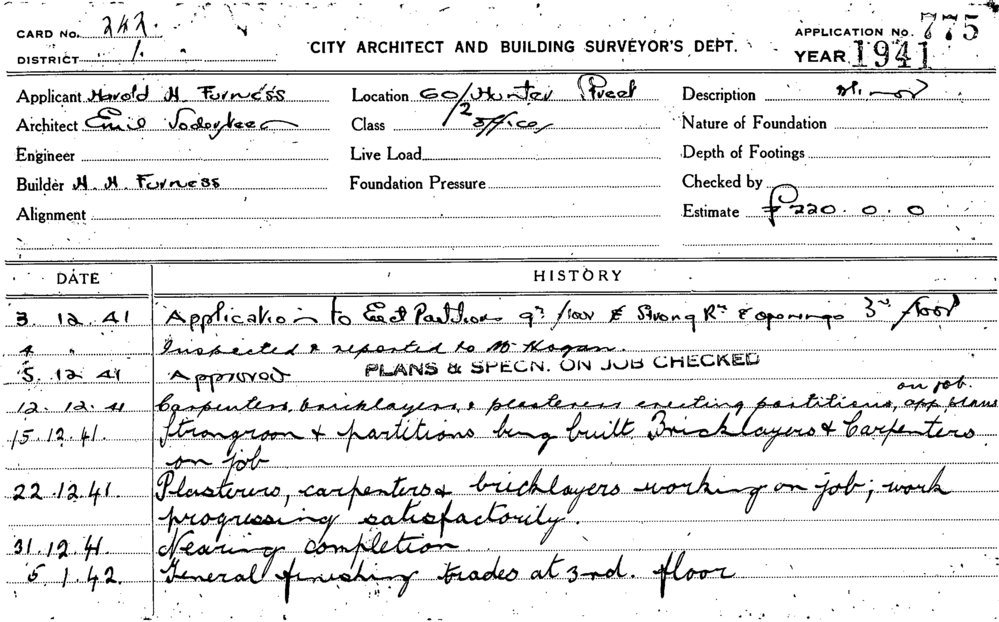 CARD No. 242.
DISTRICT 1.
CITY ARCHITECT AND BUILDING SURVEYOR'S DEPT.
APPLICATION No. 775
YEAR 1941
Applicant Harold H Furness
Location 60/2 Hunter Street
Description Minor
Architect Emil Sodersteen
Class Offices
Nature of Foundation
Engineer
Live Load
Depth of Footings
Builder H. H. Furness
Foundation Pressure
Checked by
Alignment
Estimate £220.0.0
DATE HISTORY
3.12.41 Application to Erect Partitions floor & Strong Rm & openings 3rd floor
4 " Inspected & reported to Mr Hogan.
5.12.41 Approved PLANS & SPECN. ON JOB CHECKED
12.12.41 Carpenters, bricklayers, & plasterers erecting partitions, app. plans on job.
15.12.41. Strongroom & partitions being built. Bricklayers & Carpenters
on job
22.12.41. Plasterers, carpenters & bricklayers working on job; work
progressing satisfactorily.
31.12.41. Nearing completion
5.1.42. General finishing trades at 3rd. floor